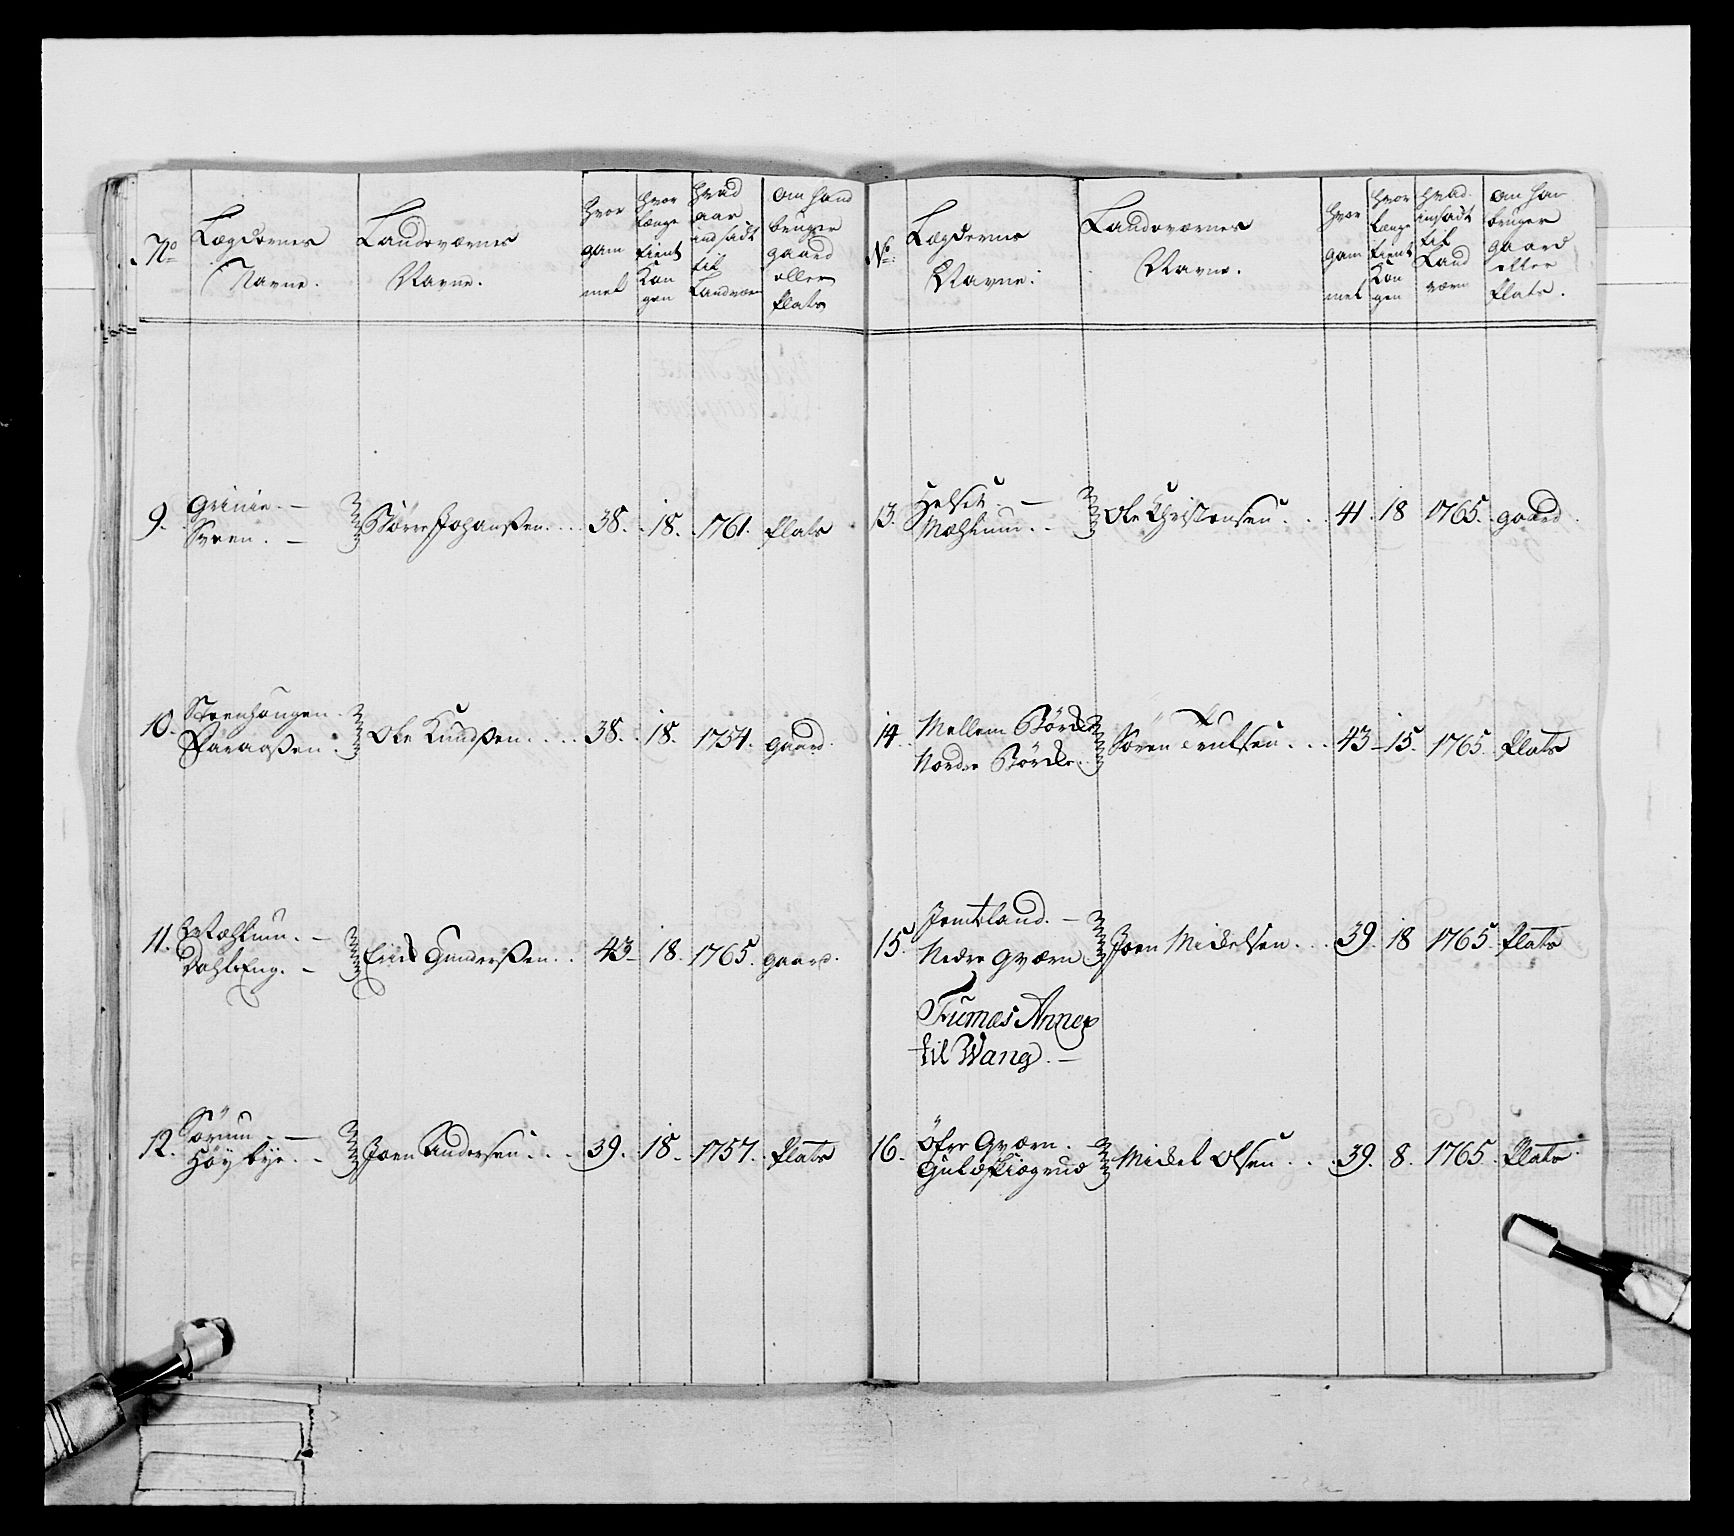 No
Lægdernes
Navne.
Landværnes
Navne.
hvor
gam
mel
hvor
længe
tient
Kon
gen
hvad
aar
indsadt
til
Landværn
om hand
bruger
gaard
eller
plats
9. Grinie. —
Sveen. —
Større Johanßen. . . 38. . 18. . 1761. plats
10. Steenhaugen.
Ole Knudßen. . . . 38. . 18. 1754. gaard.
11. Mæhlum. —
Dahls Eng. —
Erick Gunderßen. . 43 - 18. 1765. gaard.
12. Sörum. —
Höybye. . —
Joen Andersen. . . 39. 18. 1757. plats
No.
Lægdernes
Navne.
Landværnes
Navne.
hvor
gam
mel
hvor
længe
tient
Kon
gen
hvad
indsadt
til
Land
værn
om han
bruger
gaard
eller
plats.
13. —
Mæhlum. . .
Ole Christensen. . . 41. 18 1765. gaard.
14. Mellem Börcke
Nordre Börcke.
Sören Trulsen. . . 43 - 15. 1765. plats
15. Jemtland. —
Nedre Qværn.
Joen Mickelsen. . . 39. 18 1765. plats
Furnæs Annex
til Wang. —
16. Öfre Qværn.
Guldskiøgrud
Mickel Olsen. . . 39. 8. 1765. Plats.